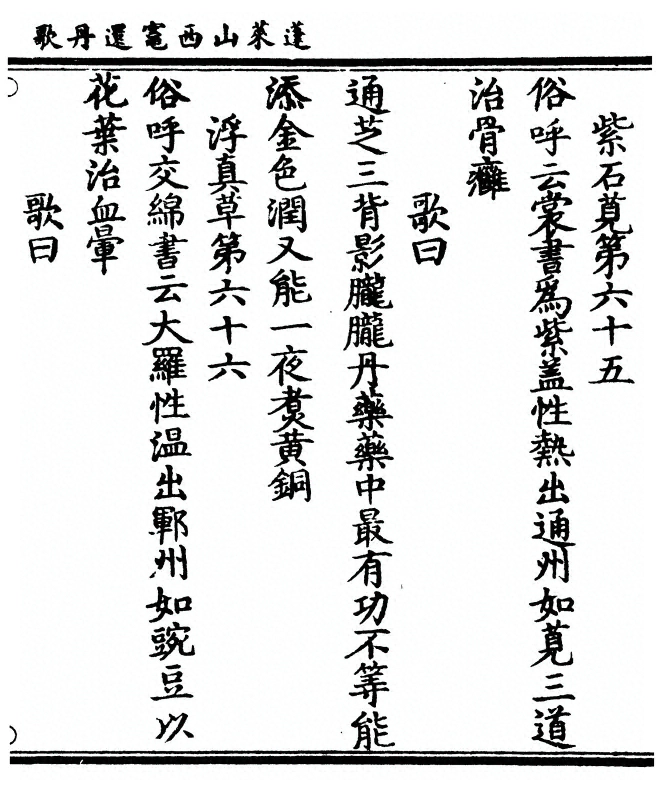 蓬萊山西竈還丹歌
紫石莧第六十五
俗呼云裳書爲紫蓋性熱出通州如莧三道
治骨癰
歌曰
通芝三背影朧朧丹藥藥中最有功不等能
添金色潤又能一夜煑黄銅
浮真草第六十六
俗呼交綿書云大羅性温出鄆州如豌豆以
花葉治血暈
歌曰